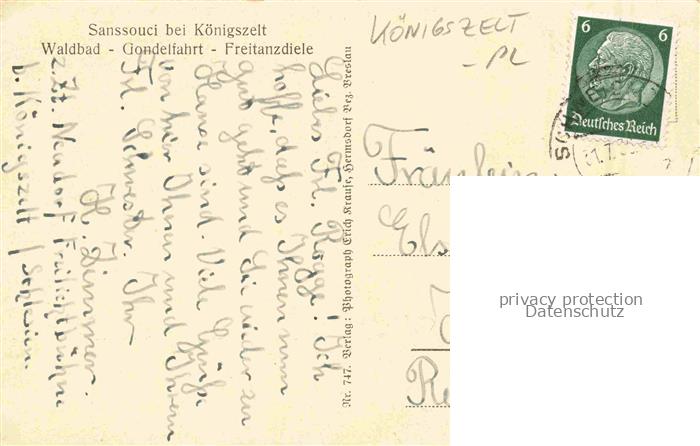 Sanssouci bei Königszelt
Waldbad - Gondelfahrt - Freitanzdiele
KÖNIGSZELT
- PL
6 6
Deutsches Reich
Liebes Frl. Rogge! Ich
hoffe, daß es Ihnen nun
gut geht und Sie wieder zu
Hause sind. Viele Grüße
von hier Ihnen und Ihrem
Frl. Schwester. Ihr
H. Zimmer.
z. Zt. Neudorf Freilichtbühne
b. Königszelt / Schlesien.
Nr. 747. Verlag: Photograph Erich Krause, Hermsdorf Bez. Breslau
Fräulein
Els
privacy protection
Datenschutz